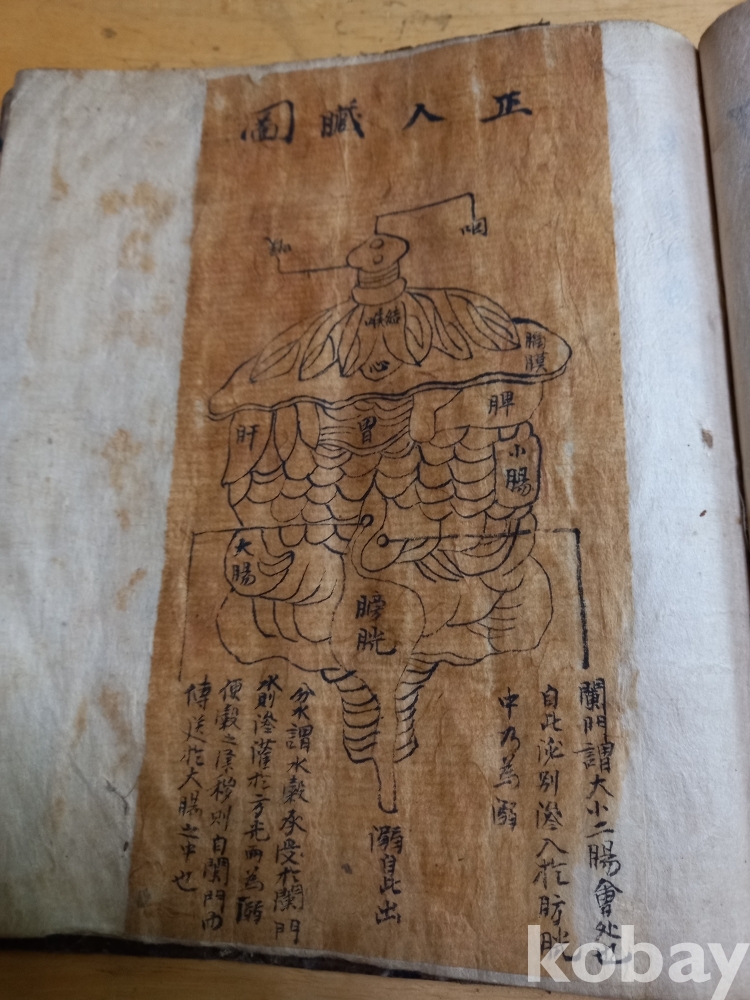 正人臟圖
咽
結喉
心
膜
脾
胃
肝
小腸
大腸
膀胱
闌門謂大小二腸會處也
自此泌別滲入於肪胱
中乃為溺
溺自此出
分水謂水穀承受於闌門
水則滲灌於方光而為溺
便穀之滓穢則自闌門而
傳送於大腸之中也
kobay